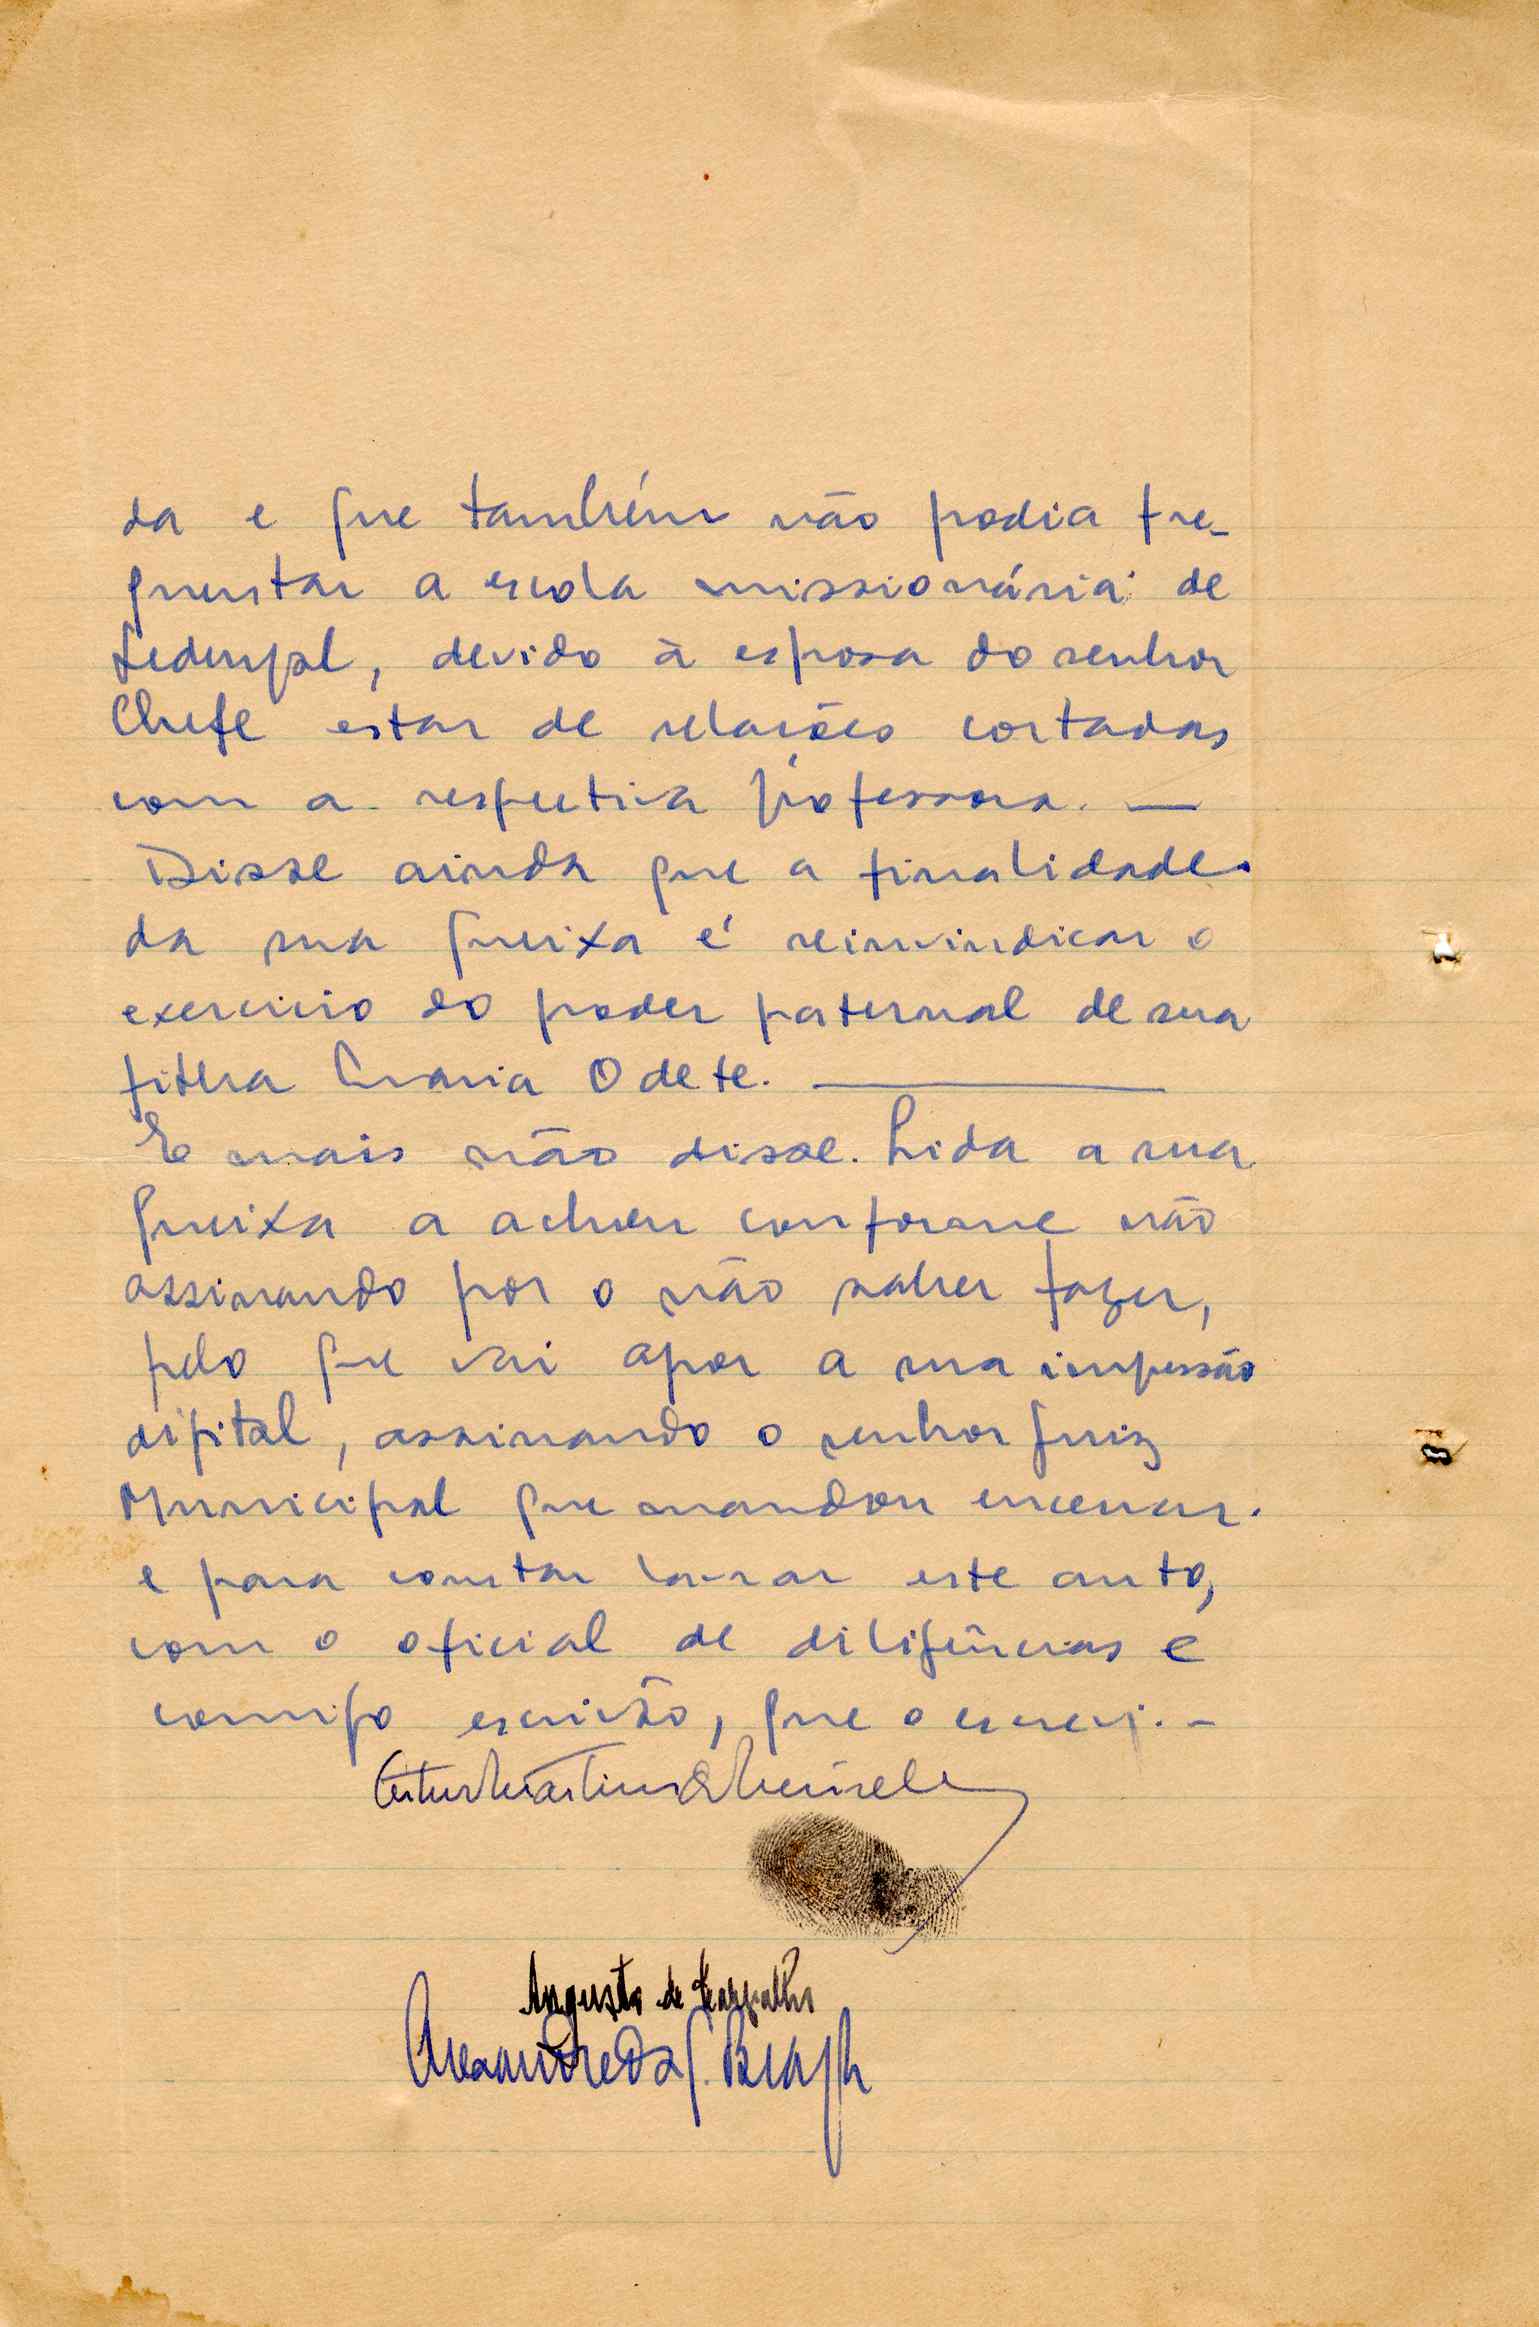 da e que também não podia fre-
quentar a escola missionária de
devido à esposa do senhor
Chefe estar de relações cortadas
com a respectiva professora. —
Disse ainda que a finalidade
da sua queixa é reinvindicar o
exercicio do poder paternal de sua
filha Maria Odete. —
E mais não disse. Lida a sua
queixa a achou conforme não
assinando por o não saber fazer,
pelo que vai apor a sua impressão
digital, assinando o senhor Juiz
Municipal que mandou encerrar.
e para constar lavrar este auto,
com o oficial de diligências e
comigo escrivão, que o escrevi. -
Augusto de Carvalho